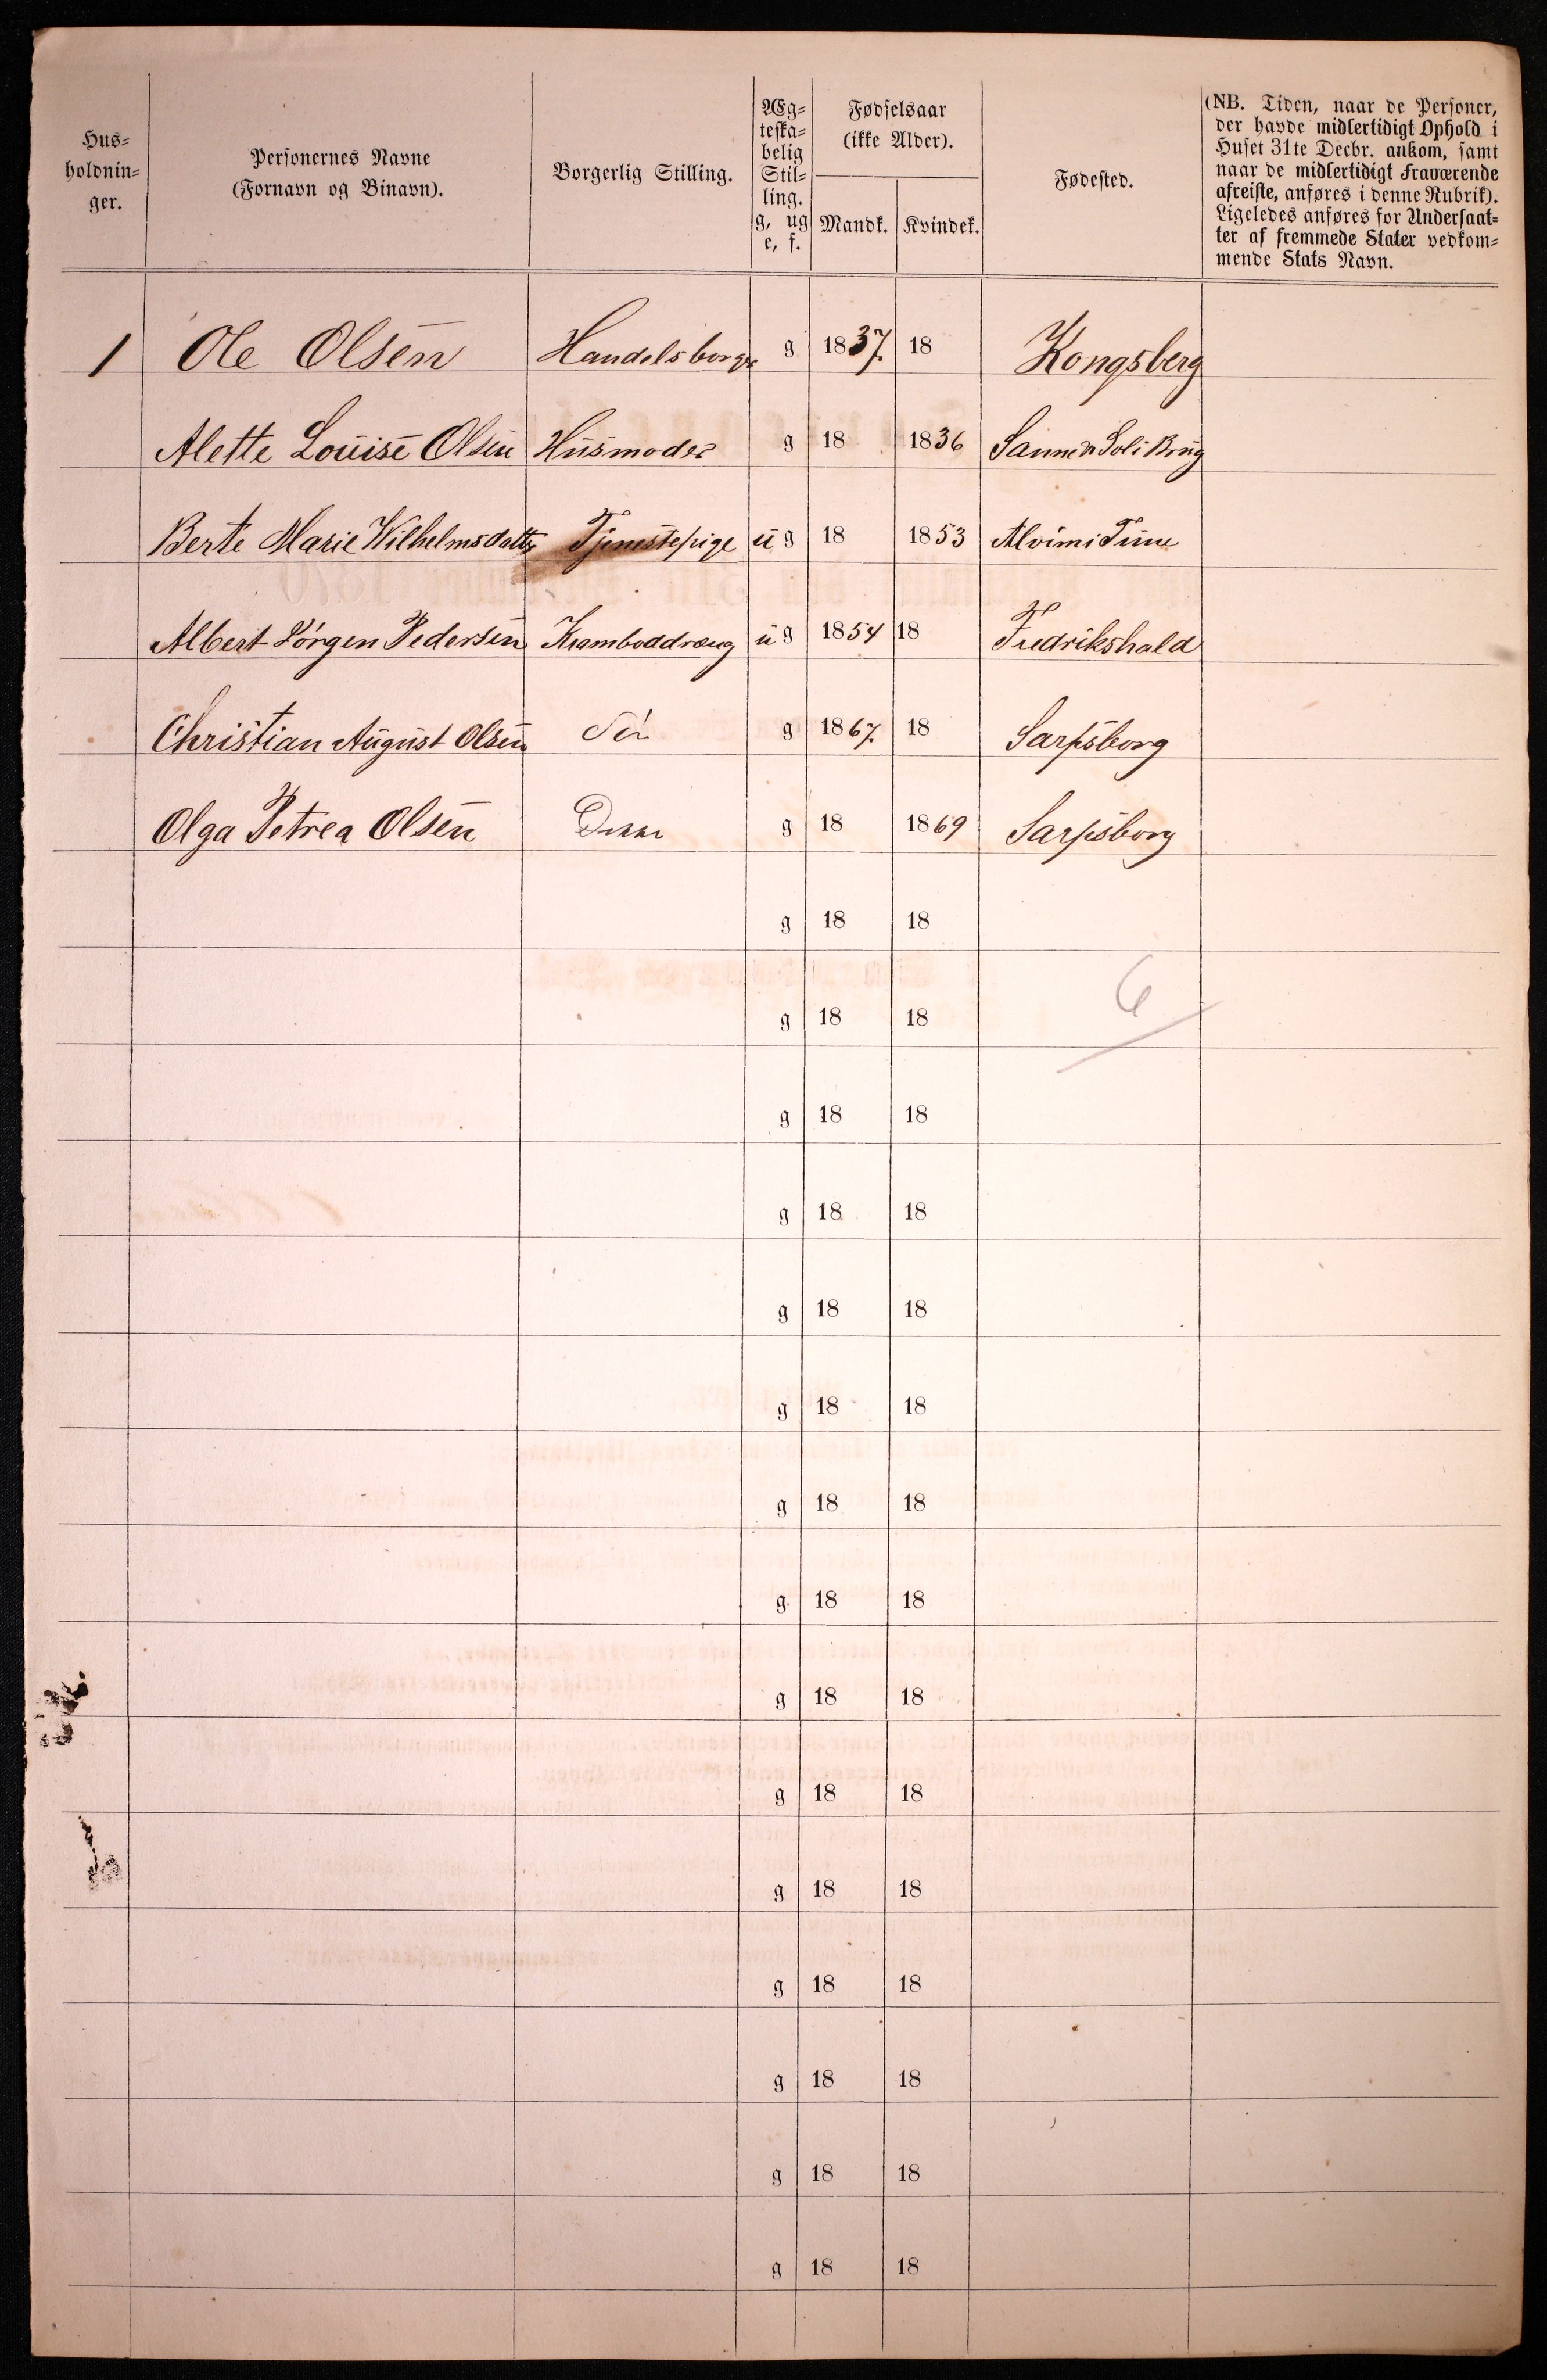 Hus-
holdnin-
ger.
Personernes Navne
(Fornavn og Binavn).
Borgerlig Stilling.
Æg-
teska-
belig
Stil-
ling.
g, ug
e, f.
Fødselsaar
(ikke Alder).
Mandk.
Kvindek.
Fødested.
(NB. Tiden, naar de Personer,
der havde midlertidigt Ophold i
Huset 31te Decbr. ankom, samt
naar de midlertidigt Fraværende
afreiste, anføres i denne Rubrik).
Ligeledes anføres for Undersaat-
ter af fremmede Stater vedkom-
mende Stats Navn.
1 Ole Olsen Handelsborger g 1837. 18 Kongsberg
Alette Louise Olsen Husmoder g 18 1836 Soli Brug
Berte Marie Wilhelmsdatter Tjenestepige ug 18 1853 Alvim i Tune
Albert Jørgen Pedersen Kramboddreng ug 1854 18 Fredrikshald
Christian August Olsen Søn g 1867. 18 Sarpsborg
Olga Petrea Olsen g 18 1869 Sarpsborg
g 18 18
g 18 18 6
g 18 18
g 18 18
g 18 18
g 18 18
g 18 18
g 18 18
g 18 18
g 18 18
g 18 18
g 18 18
g 18 18
g 18 18
g 18 18